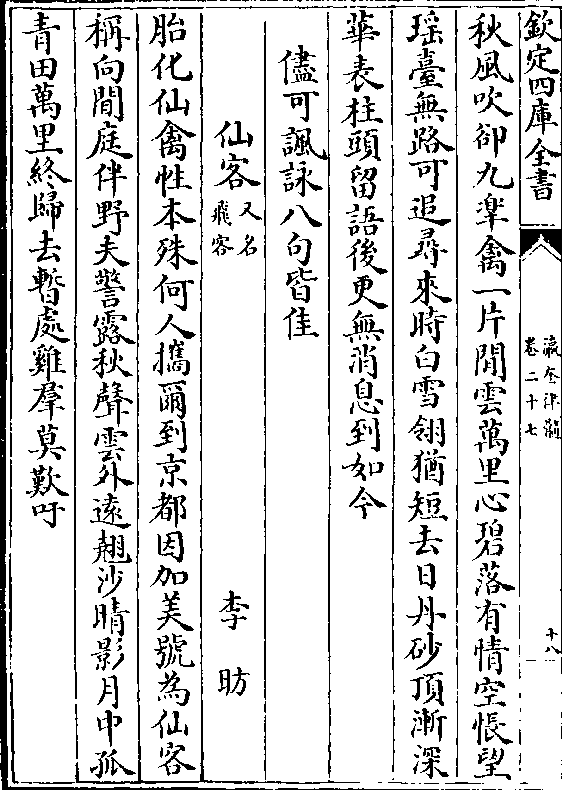 欽定四庫全書
瀛奎律髓
卷二十七
十八
秋風吹卻九臯禽一片閒雲萬里心碧落有情空悵望
瑶臺無路可追尋來時白雪翎猶短去日丹砂頂漸深
華表柱頭留語後更無消息到如今
儘可諷詠八句皆佳
仙客又名飛客
李昉
胎化仙禽性本殊何人攜爾到京都因加美號為仙客
稱向閒庭伴野夫警露秋聲雲外遠翹沙晴影月中孤
青田萬里終歸去暫處雞羣莫歎吁